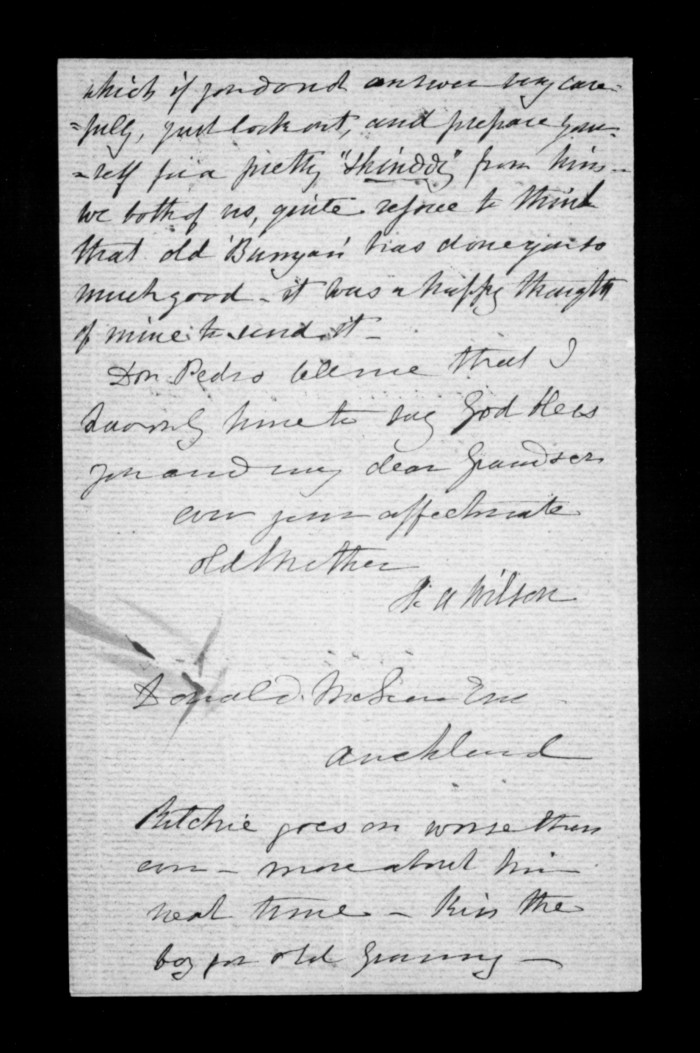 which if you do not answer very care=
=fully, just look out, and prepare your
=self for a pretty "shinddy" from him -
we both of us, quite rejoice to think
that old 'Bunyan' has done you so
much good - it was a happy thought
of mine to send it -
Don Pedro tells me that I
have only time to say God bless
you and my dear Grandson
ever your affectionate
old Mother
A Wilson
Donald McLean Esq
Auckland
Ritchie goes on worse than
ever - more about him
next time - Kiss the
boy for old Granny -